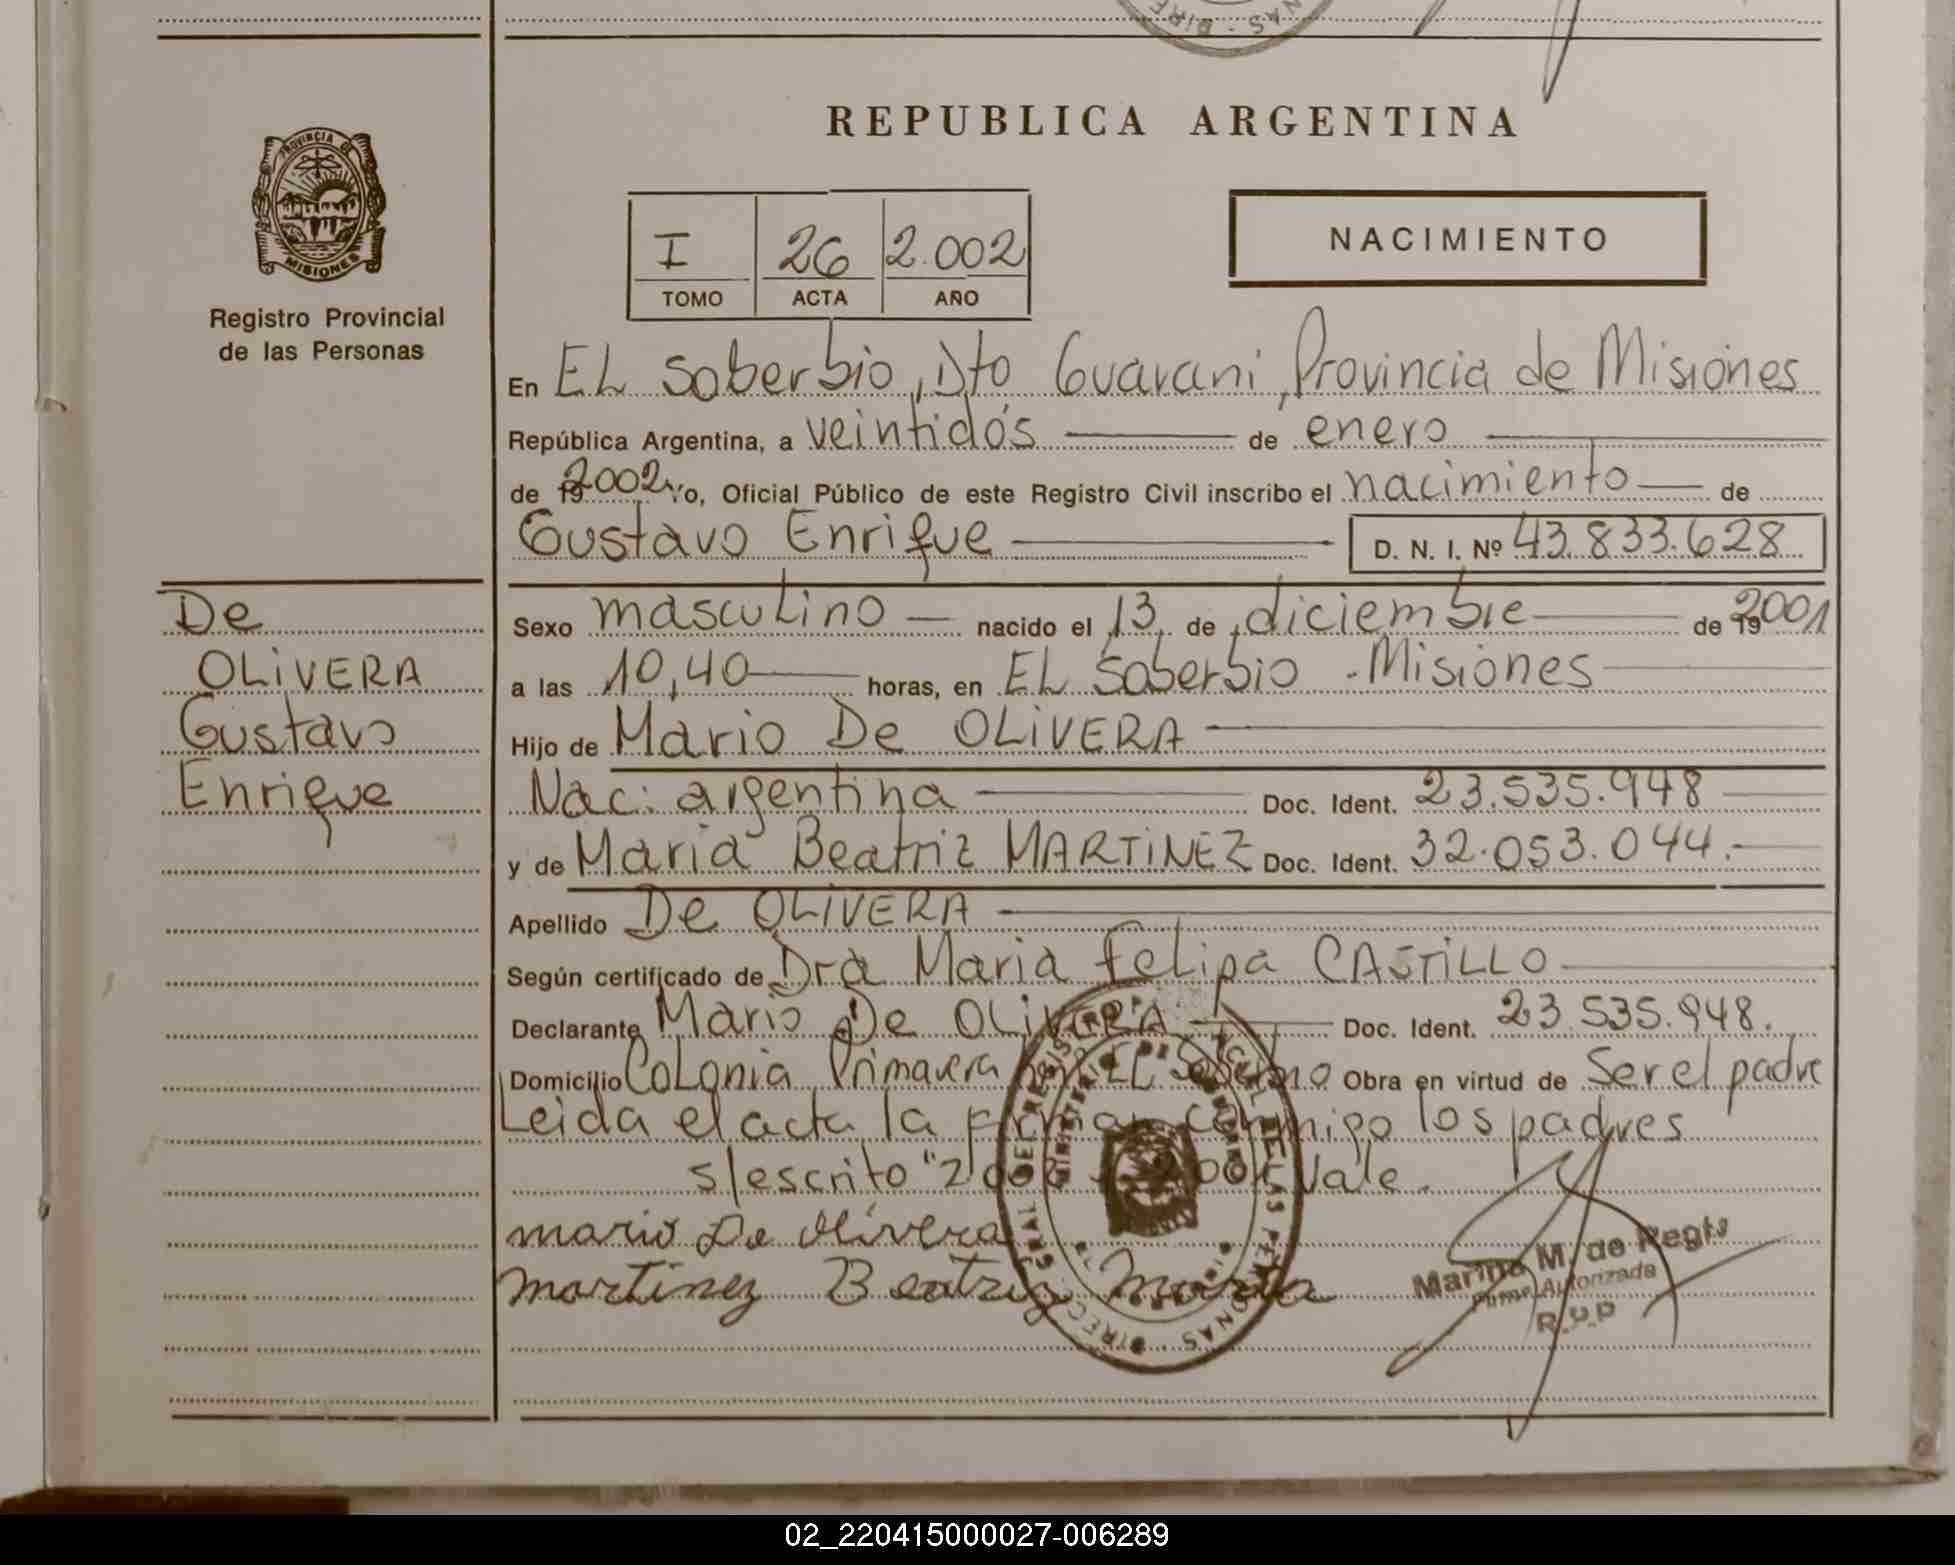 REPUBLICA ARGENTINA
PROVINCIA DE
MISIONES
Registro Provincial
de las Personas
I 26 2.002
TOMO ACTA AÑO
NACIMIENTO
En EL Soberbio, Dto Guarani, Provincia de Misiones
República Argentina, a veintidós de enero
de 2002 Yo, Oficial Público de este Registro Civil inscribo el nacimiento de
Gustavo Enrique D. N. I. Nº 43.833.628
De
OLiVERA
Gustavo
Enrique
Sexo masculino nacido el 13 de diciembre de 2001
a las 10,40 horas, en EL Soberbio - Misiones
Hijo de Mario De OLiVERA
Nac: argentina Doc. Ident. 23.535.948
y de Maria Beatriz MARTiNEZ Doc. Ident. 32.053.044.-
Apellido De OLiVERA
Según certificado de Dra Maria Felipa CASTiLLO
Declarante Mario De OLiVERA Doc. Ident. 23.535.948.
Domicilio Colonia Primavera EL Soberbio Obra en virtud de Ser el padre
Leida el acta la firman conmigo los padres
s/escrito "2002 - 2001 Vale.
mario De Olivera
martinez Beatriz Maria
Marina M. de Regts
Firma Autorizada
R.P.P
02_220415000027-006289